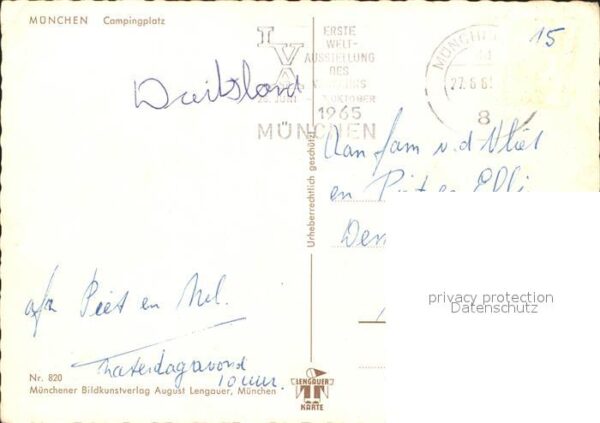 MÜNCHEN Campingplatz
IVA
ERSTE
WELT-
AUSSTELLUNG
DES
1965
MÜNCHEN
MÜNCHE
27.6.65
8
15
Duitsland
Aan fam v.d Vliet
en Piet en Elli
Den
afz Piet en Nel.
Zaterdagavond
10 uur.
Urheberrechtlich geschützt
privacy protection
Datenschutz
Nr. 820
Münchener Bildkunstverlag August Lengauer, München
LENGAUER
KARTE